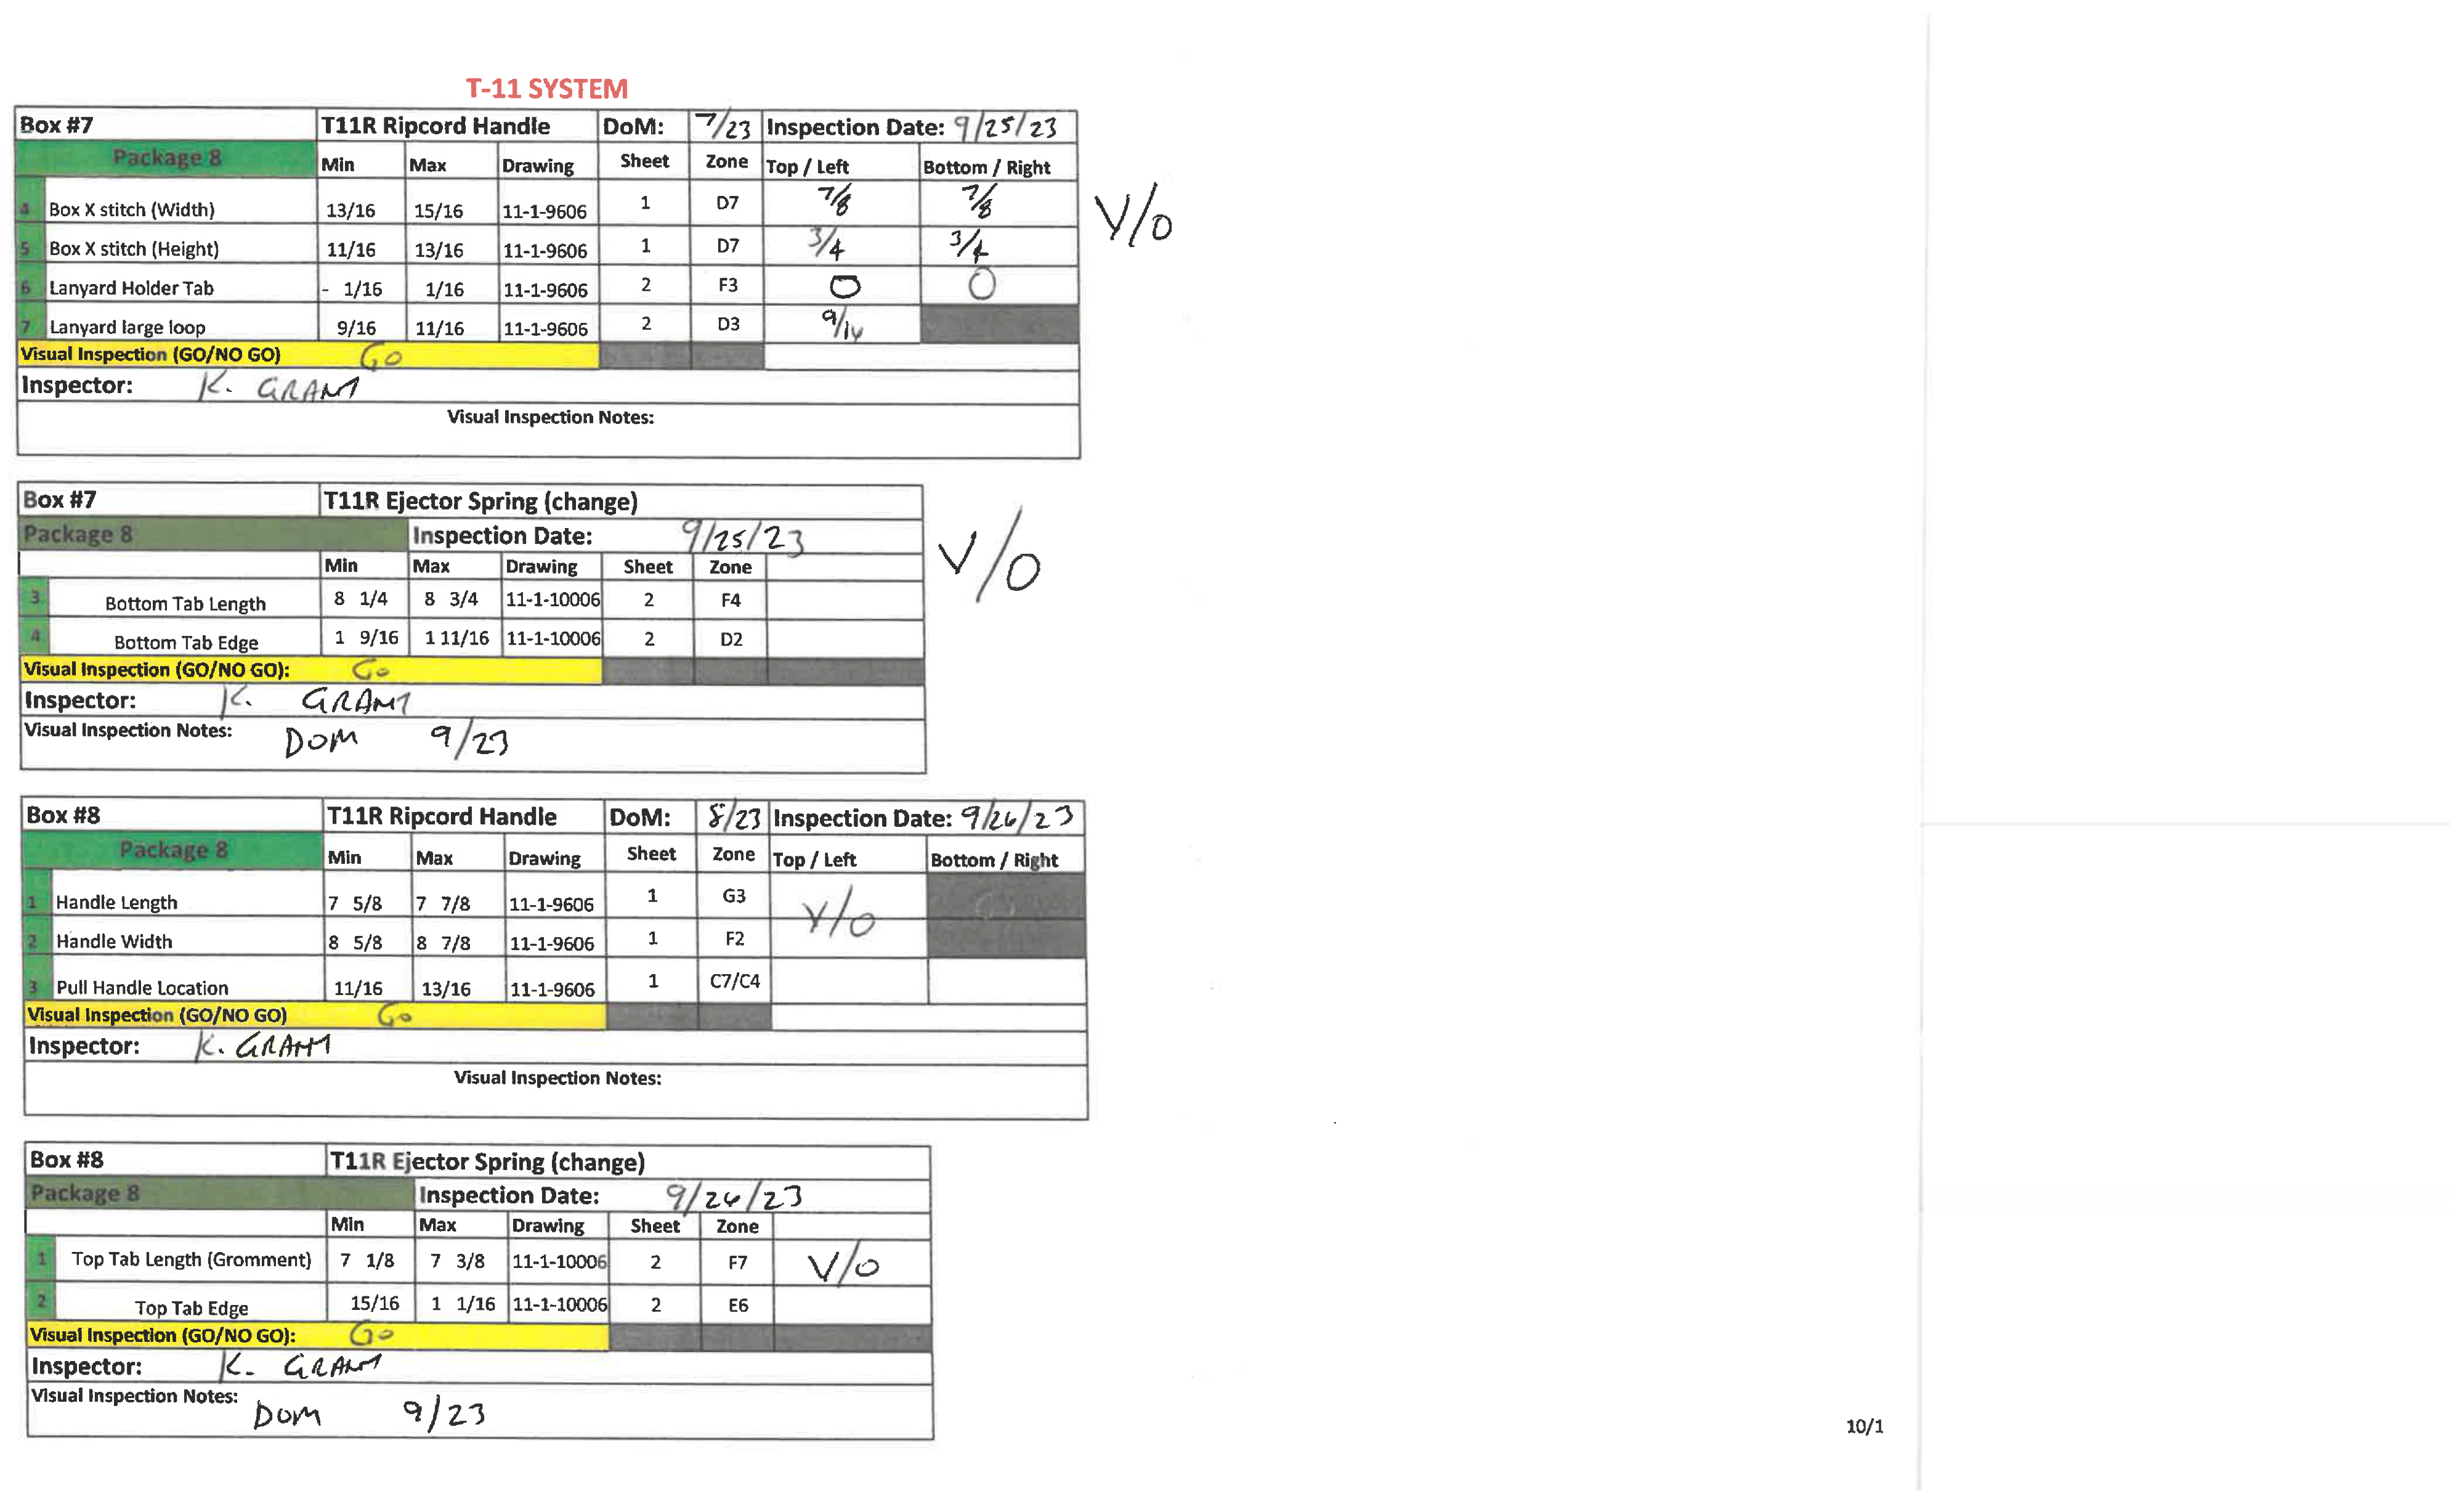 T-11 SYSTEM
Box #7 T11R Ripcord Handle DoM: 7/23 Inspection Date: 9/25/23
Package 8 Min Max Drawing Sheet Zone Top / Left Bottom / Right
4 Box X stitch (Width) 13/16 15/16 11-1-9606 1 D7 7/8 7/8
V/O
5 Box X stitch (Height) 11/16 13/16 11-1-9606 1 D7 3/4 3/4
6 Lanyard Holder Tab - 1/16 1/16 11-1-9606 2 F3 0 0
7 Lanyard large loop 9/16 11/16 11-1-9606 2 D3 9/16
Visual Inspection (GO/NO GO) GO
Inspector: K. GRANT
Visual Inspection Notes:
Box #7 T11R Ejector Spring (change)
Package 8 Inspection Date: 9/25/23
V/O
Min Max Drawing Sheet Zone
3 Bottom Tab Length 8 1/4 8 3/4 11-1-10006 2 F4
4 Bottom Tab Edge 1 9/16 1 11/16 11-1-10006 2 D2
Visual Inspection (GO/NO GO): Go
Inspector: K. GRANT
Visual Inspection Notes: DOM 9/23
Box #8 T11R Ripcord Handle DoM: 8/23 Inspection Date: 9/26/23
Package 8 Min Max Drawing Sheet Zone Top / Left Bottom / Right
1 Handle Length 7 5/8 7 7/8 11-1-9606 1 G3 V/O
2 Handle Width 8 5/8 8 7/8 11-1-9606 1 F2
3 Pull Handle Location 11/16 13/16 11-1-9606 1 C7/C4
Visual Inspection (GO/NO GO) Go
Inspector: K. GRANT
Visual Inspection Notes:
Box #8 T11R Ejector Spring (change)
Package 8 Inspection Date: 9/26/23
Min Max Drawing Sheet Zone
1 Top Tab Length (Gromment) 7 1/8 7 3/8 11-1-10006 2 F7 V/O
2 Top Tab Edge 15/16 1 1/16 11-1-10006 2 E6
Visual Inspection (GO/NO GO): Go
Inspector: K. GRANT
Visual Inspection Notes: DOM 9/23
10/1